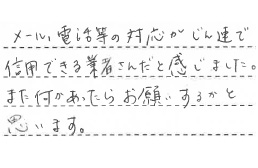 メール、電話等の対応がじん速で
信用できる業者さんだと感じました。
また何かあったらお願いするかと
思います。